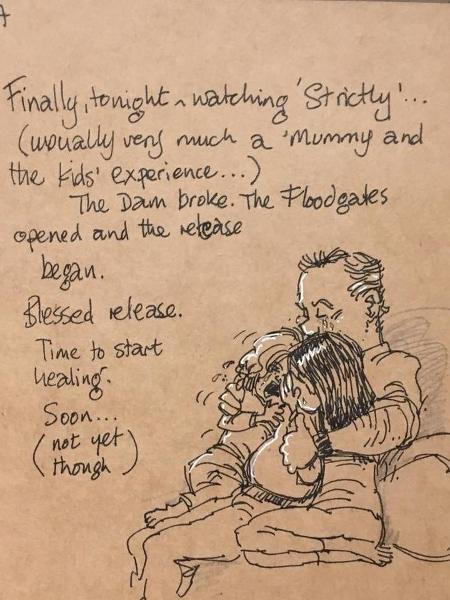 Finally, tonight ^ watching 'Strictly'...
(usually very much a 'Mummy and
the kids' experience...)
The Dam broke. The Floodgates
opened and the release
began.
Blessed release.
Time to start
healing.
Soon...
(not yet
though)